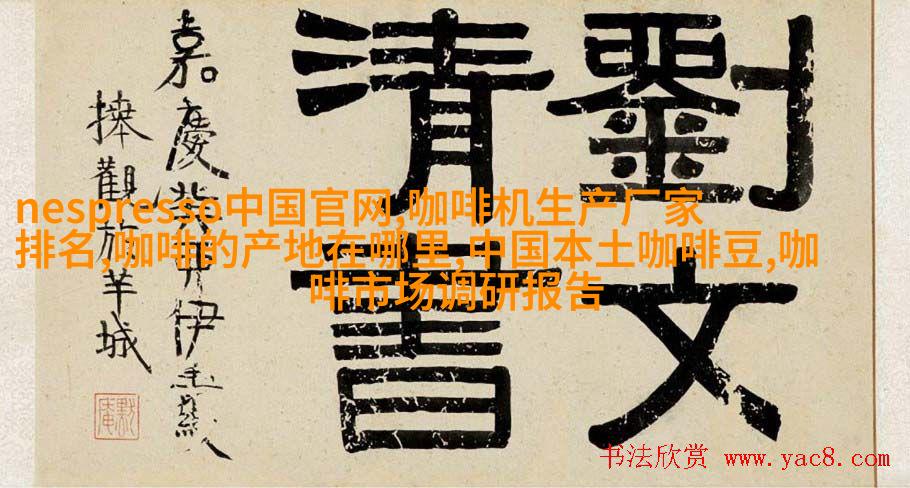 劉文
清書
嘉慶癸酉伊秉綬
捧觀於羊城
默庵
nespresso中国官网,咖啡机生产厂家
排名,咖啡的产地在哪里,中国本土咖啡豆,咖
啡市场调研报告
书法欣赏 www.yac8.com